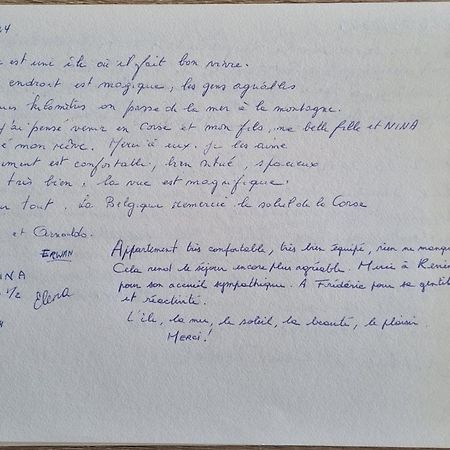 24
est une île où il fait bon vivre.
endroit est magique, les gens agréables
ques kilomètres on passe de la mer à la montagne.
j'ai pensé venir en Corse et mon fils, ma belle fille et NINA
é mon rêve. Merci à eux. je les aime
ment est confortable, bien situé, spacieux
très bien. la vue est magnifique.
tout. La Belgique remercie le soleil de la Corse
et
ERWAN
NINA
1/2 Elena
Appartement très confortable, très bien équipé, rien ne manque
Cela rend le séjour encore plus agréable. Merci à René
pour son accueil sympathique. A Frédéric pour sa gentil
et réactivité.
L'île, la mer, le soleil, la beauté, le plaisir.
MERCI!